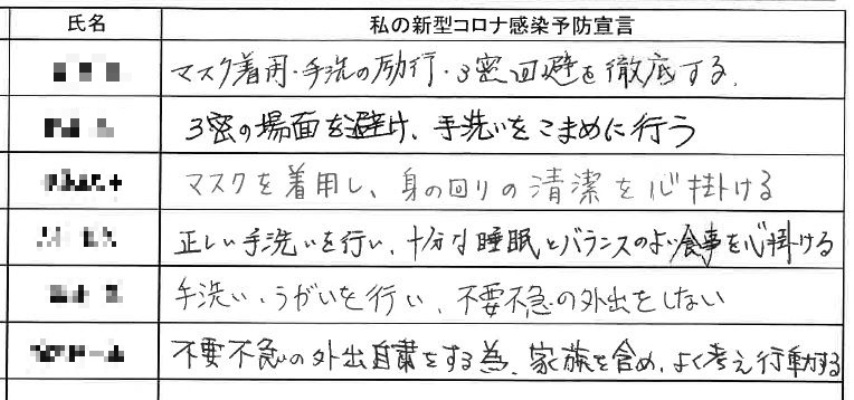 氏名 私の新型コロナ感染予防宣言
マスク着用・手洗の励行・3密回避を徹底する。
3密の場面を避け、手洗いをこまめに行う
マスクを着用し、身の回りの清潔を心掛ける
正しい手洗いを行い、十分な睡眠とバランスのよい食事を心掛ける
手洗い、うがいを行い、不要不急の外出をしない
不要不急の外出自粛をする為、家族を含め、よく考え行動する